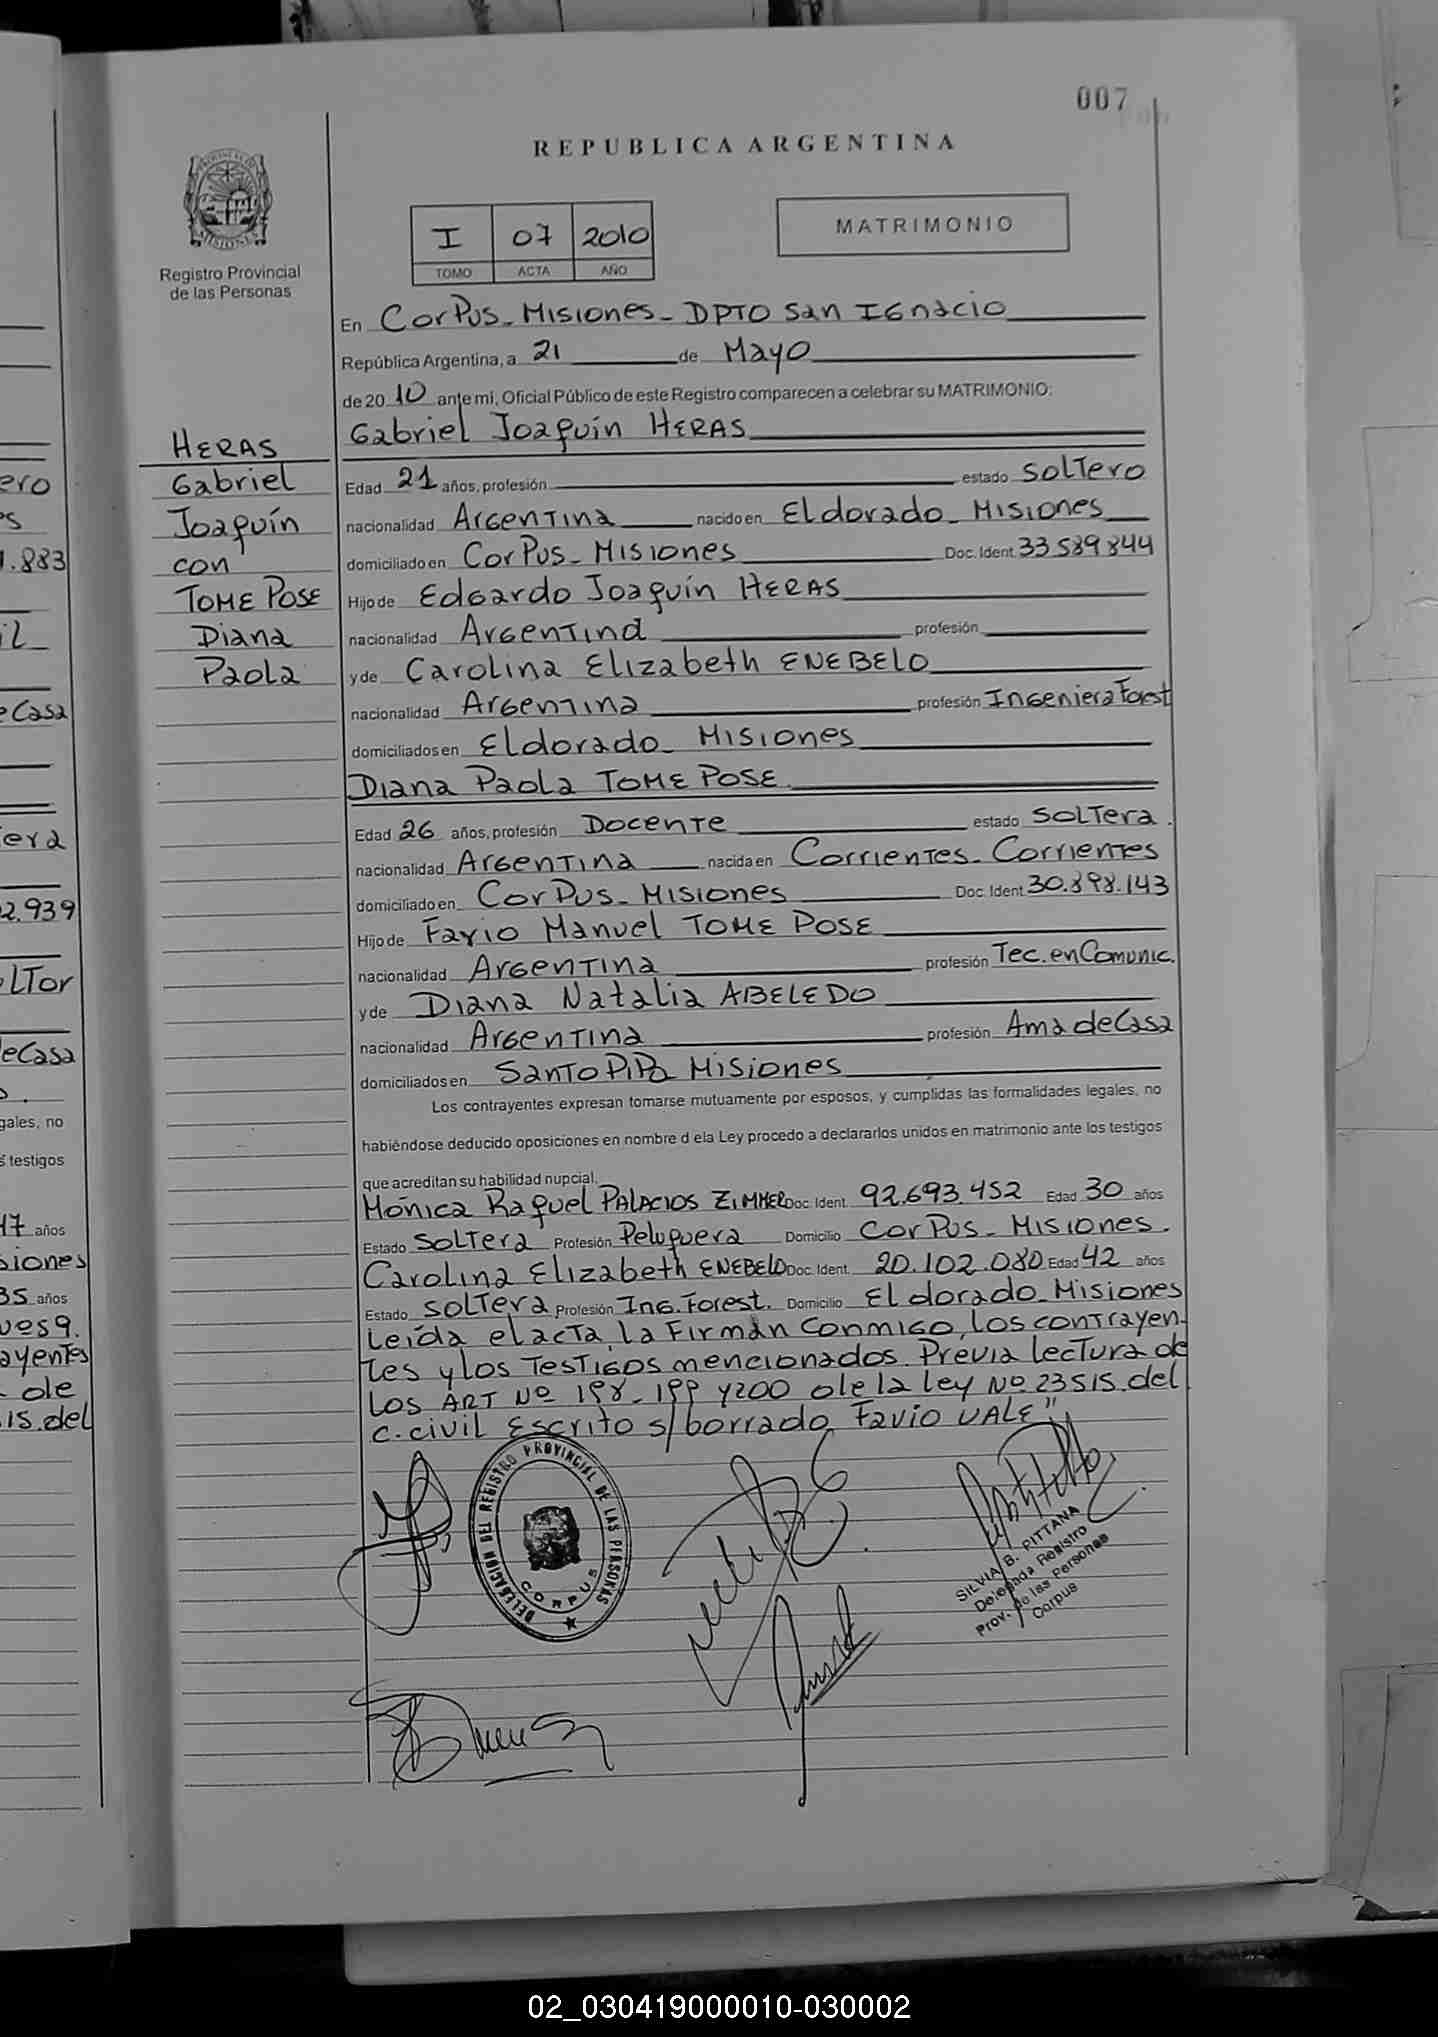 007
REPUBLICA ARGENTINA
PROVINCIA DE
MISIONES
Registro Provincial
de las Personas
I 07 2010
TOMO ACTA AÑO
MATRIMONIO
En Corpus - Misiones - DPTO San Ignacio
República Argentina, a 21 de Mayo
de 20 10 ante mi, Oficial Público de este Registro comparecen a celebrar su MATRIMONIO:
Gabriel Joaquín HERAS
HERAS
Gabriel
Joaquín
con
TOME POSE
Diana
Paola
Edad 21 años, profesión estado Soltero
nacionalidad Argentina nacido en Eldorado - Misiones
domiciliado en Corpus - Misiones Doc. Ident. 33.589.844
Hijo de Edgardo Joaquín HERAS
nacionalidad Argentina profesión
y de Carolina Elizabeth ENEBELO
nacionalidad Argentina profesión Ingeniera Forest
domiciliados en Eldorado - Misiones
Diana Paola TOME POSE
Edad 26 años, profesión Docente estado Soltera.
nacionalidad Argentina nacida en Corrientes - Corrientes
domiciliado en Corpus - Misiones Doc. Ident 30.898.143
Hijo de Favio Manuel TOME POSE
nacionalidad Argentina profesión Tec. en Comunic.
y de Diana Natalia ABELEDO
nacionalidad Argentina profesión Ama de Casa
domiciliados en Santo Pipó Misiones
Los contrayentes expresan tomarse mutuamente por esposos, y cumplidas las formalidades legales, no
habiéndose deducido oposiciones en nombre d ela Ley procedo a declararlos unidos en matrimonio ante los testigos
que acreditan su habilidad nupcial.
Mónica Raquel PALACIOS ZIMMER Doc. Ident. 92.693.452 Edad 30 años
Estado Soltera Profesión Peluquera Domicilio Corpus - Misiones.
Carolina Elizabeth ENEBELO Doc. Ident. 20.102.080 Edad 42 años
Estado Soltera Profesión Ing. Forest. Domicilio Eldorado - Misiones
Leída el acta, la Firman Conmigo, los contrayen-
tes y los Testigos mencionados. Previa lectura de
los ART Nº 198 - 199 y 200 de la ley Nº 23515 del
C. civil Escrito s/ borrado Favio VALE"
DELEGACION DEL REGISTRO PROVINCIAL DE LAS PERSONAS
CORPUS
SILVIA B. PITTANA
Delegada Registro
Prov. de las Personas
Corpus
ero
1.883
il
e Casa
era
2.939
LTor
e Casa
gales, no
s testigos
47 años
siones
35 años
ves 9.
ayentes
de
15. del
02_030419000010-030002